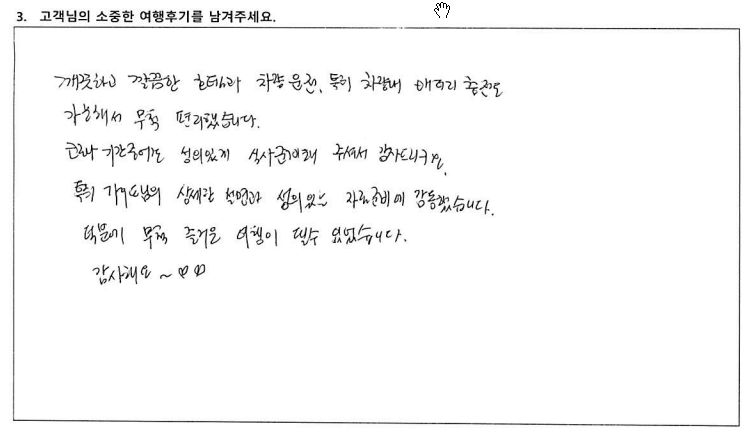 3. 고객님의 소중한 여행후기를 남겨주세요.
깨끗하고 깔끔한 호텔과 차량 운전, 특히 차량내 배터리 충전도
가능해서 무척 편리했습니다.
기간중에도 성의있게 식사준비해 주셔서 감사드리구요,
특히 가이드님의 상세한 설명과 성의있는 자료준비에 감동했습니다.
덕분에 무척 즐거운 여행이 될수 있었습니다.
감사해요 ~ ♡♡